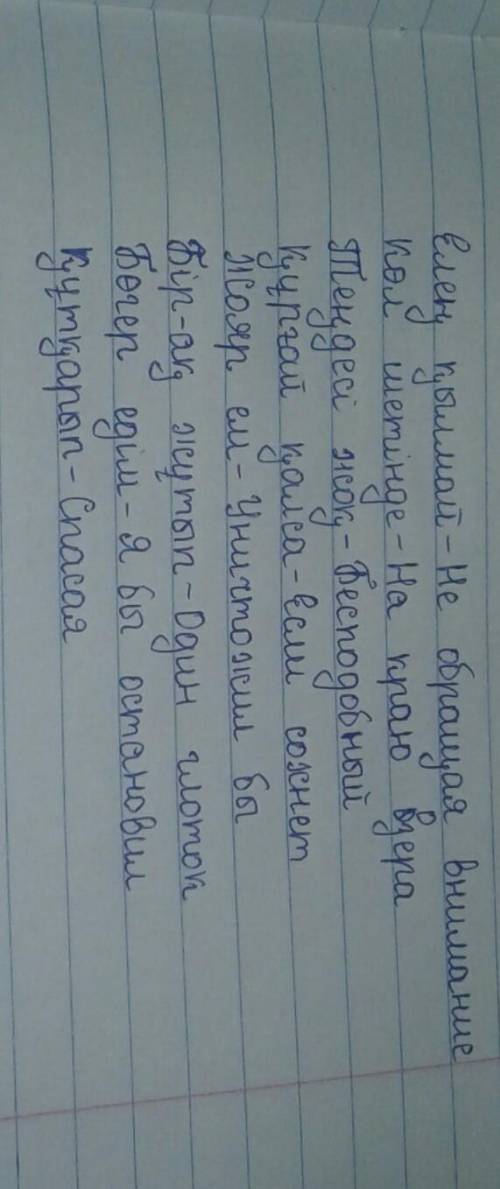 Елең қылмай - Не обращая внимание
Көл шетінде - На краю озера
Теңдесі жоқ - Бесподобный
Құрғай қалса - Если сохнет
Жояр ем - Уничтожил бы
Бір-ақ жұтып - Один глоток
Бөгер едім - Я бы остановил
Құтқарып - Спасая